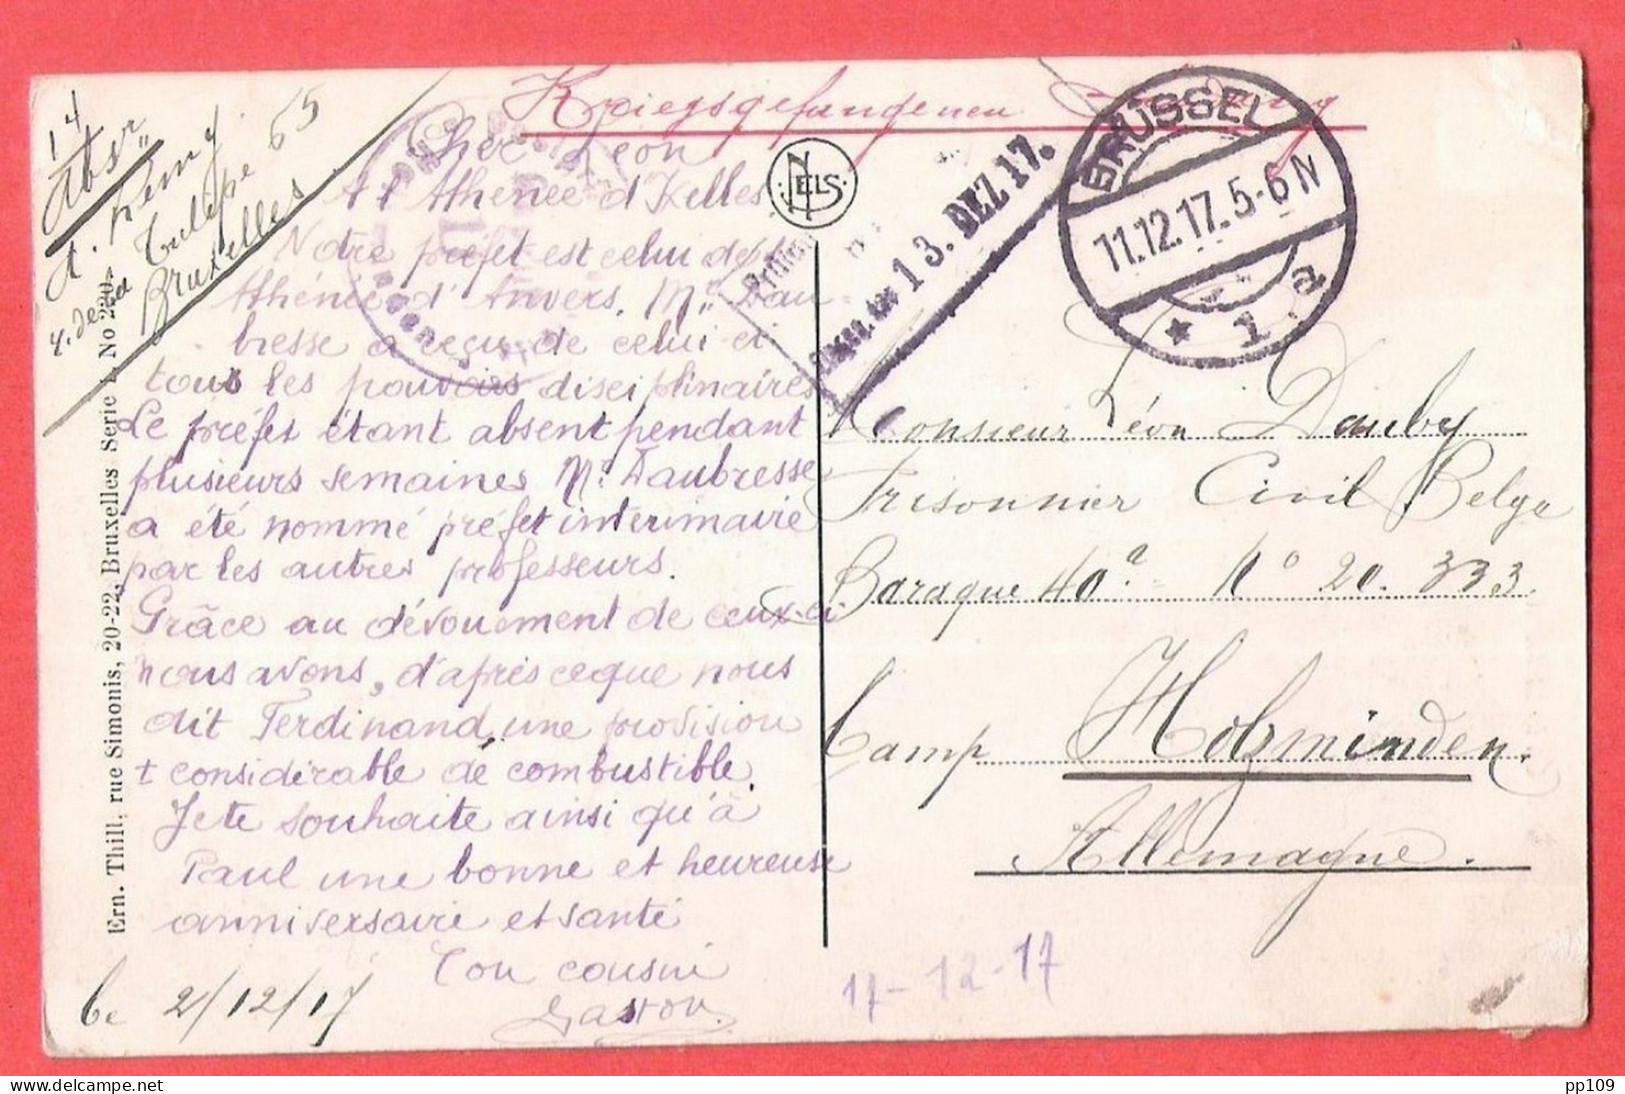 Kriegsgefangenen
14
Abs.r
A. Remy
4. de la Tulipe 65
Bruxelles
Cher Léon
A l'Athénée d'Ixelles
Notre préfet est celui de l'
Athénée d'Anvers. Mr. Dau-
bresse a reçu de celui ci
tous les pouvoirs disciplinaires
Le préfet étant absent pendant
plusieurs semaines Mr. Daubresse
a été nommé préfet intérimaire
par les autres professeurs.
Grâce au dévouement de ceux-ci
nous avons, d'après ce que nous
dit Ferdinand, une provision
+ considérable de combustible.
Je te souhaite ainsi qu'à
Paul une bonne et heureuse
anniversaire et santé
Ton cousin
Gaston.
Ce 2/12/17
Ern. Thill, rue Simonis, 20-22, Bruxelles Serie 1 No 220
NELS
13. DEZ 17.
BRÜSSEL
11.12.17.5-6N
* 1 d
Monsieur Léon Dauby
Prisonnier Civil Belge
Baraque 40a No 20.333
Camp Holzminden.
Allemagne.
17-12-17
pp109